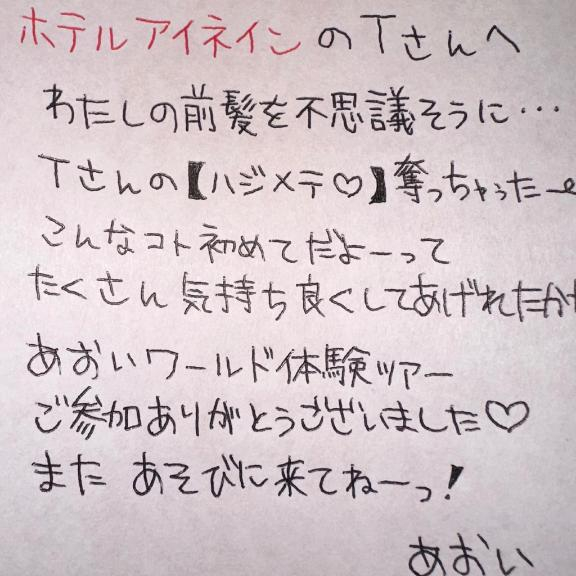 ホテルアイネインのTさんへ
わたしの前髪を不思議そうに・・・
Tさんの【ハジメテ♡】奪っちゃったー
こんなコト初めてだよーって
たくさん気持ち良くしてあげれたか
あおいワールド体験ツアー
ご参加ありがとうございました♡
またあそびに来てねーっ!
あおい